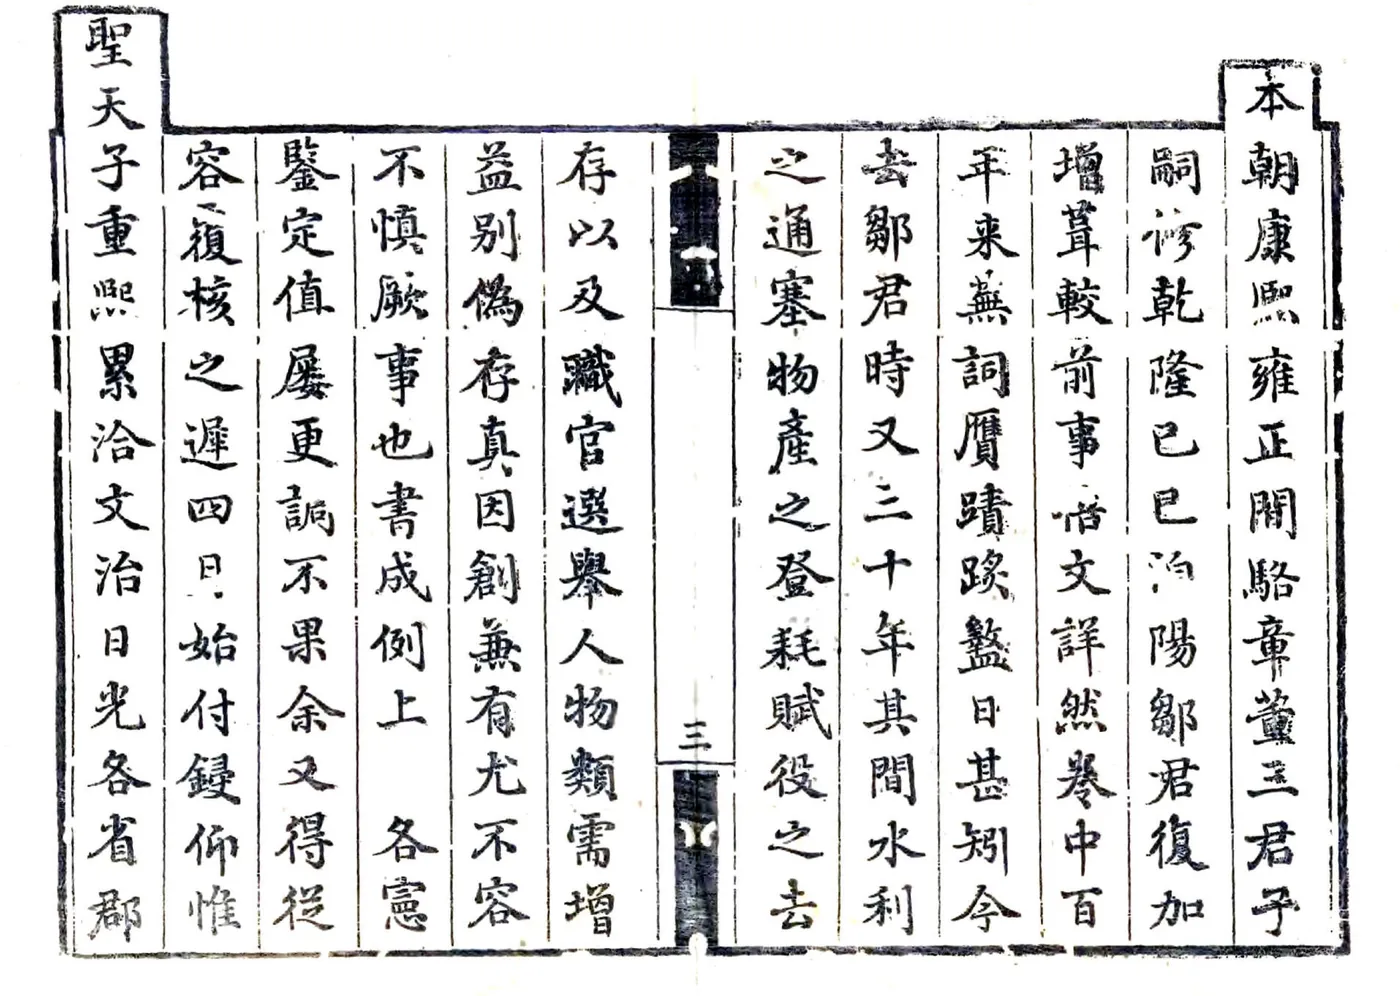 本朝康熙雍正間駱章董三君子
嗣修乾隆己巳洎陽鄒君復加
增葺較前事括文詳然卷中百
年来蕪詞贋蹟盭日甚矧今
去鄒君時又三十年其間水利
之通塞物產之登耗賦役之去
三
存以及職官選舉人物類需增
益別偽存真因創兼有尤不容
不慎厥事也書成例上 各憲
鑒定值屢更不果余又得從
容覆核之遲四日始付鋟仰惟
聖天子重熙累洽文治日光各省郡